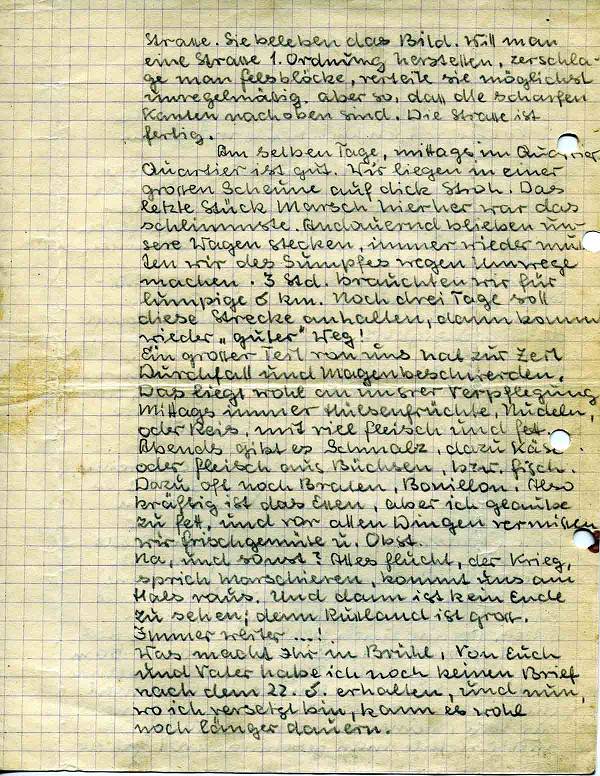 Strasse. Sie beleben das Bild. Will man
eine Strasse 1. Ordnung herstellen, zerschla-
ge man Felsblöcke, verteile sie möglichst
unregelmäßig. aber so, dass die scharfen
Kanten nach oben sind. Die Strasse ist
fertig.
Am selben Tage, mittags im Quartier
Quartier ist gut. Wir liegen in einer
grossen Scheune auf dick Stroh. Das
letzte Stück Marsch hierher war das
schlimmste. Andauernd blieben un-
sere Wagen stecken, immer wieder muß
ten wir des Sumpfes wegen Umwege
machen. 3 Std. brauchten wir für
lumpige 5 km. Noch drei Tage soll
diese Strecke anhalten, dann kommt
wieder „guter" Weg!
Ein grosser Teil von uns hat zur Zeit
Durchfall und Magenbeschwerden.
Das liegt wohl an unsrer Verpflegung
Mittags immer Hülsenfrüchte, Nudeln,
oder Reis, mit viel Fleisch und Fett.
Abends gibt es Schmalz, dazu Käse
oder Fleisch aus Büchsen, bzw. Fisch.
Dazu oft noch Braten, Bouillon. Also
kräftig ist das Essen, aber ich glaube
zu fett, und vor allen Dingen vermissen
wir Frischgemüse u. Obst.
Na, und sonst? Alles flucht, der Krieg,
sprich Marschieren, kommt uns am
Hals raus. Und dann ist kein Ende
zu sehen; denn Rußland ist gross.
Immer weiter ...!
Was macht Ihr in Brühl, von Euch
und Vater habe ich noch keinen Brief
nach dem 22. 6. erhalten, und nun,
wo ich versetzt bin, kann es wohl
noch länger dauern.